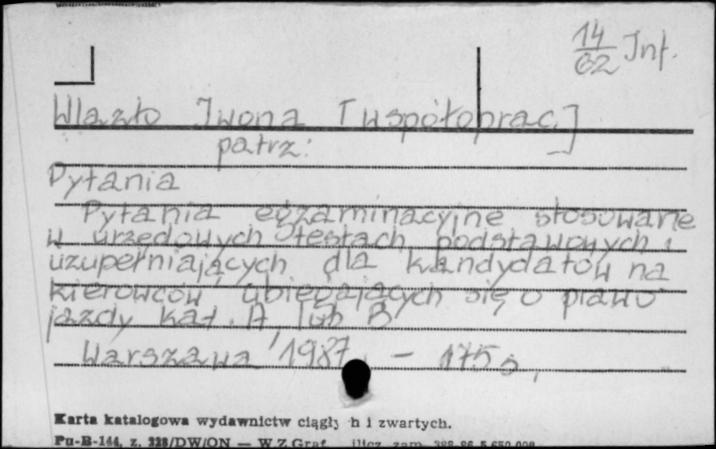 14/62 Inf.
Wlazło Iwona [współoprac.]
patrz:
Pytania
Pytania egzaminacyjne stosowane
w urzędowych testach podstawowych i
uzupełniających dla kandydatów na
kierowców ubiegających się o prawo
jazdy kat. A lub B
Warszawa 1987. - 175 s.
Karta katalogowa wydawnictw ciągły h i zwartych.
Pu-B-144, z. 328/DW/ON — WZGraf. zam.